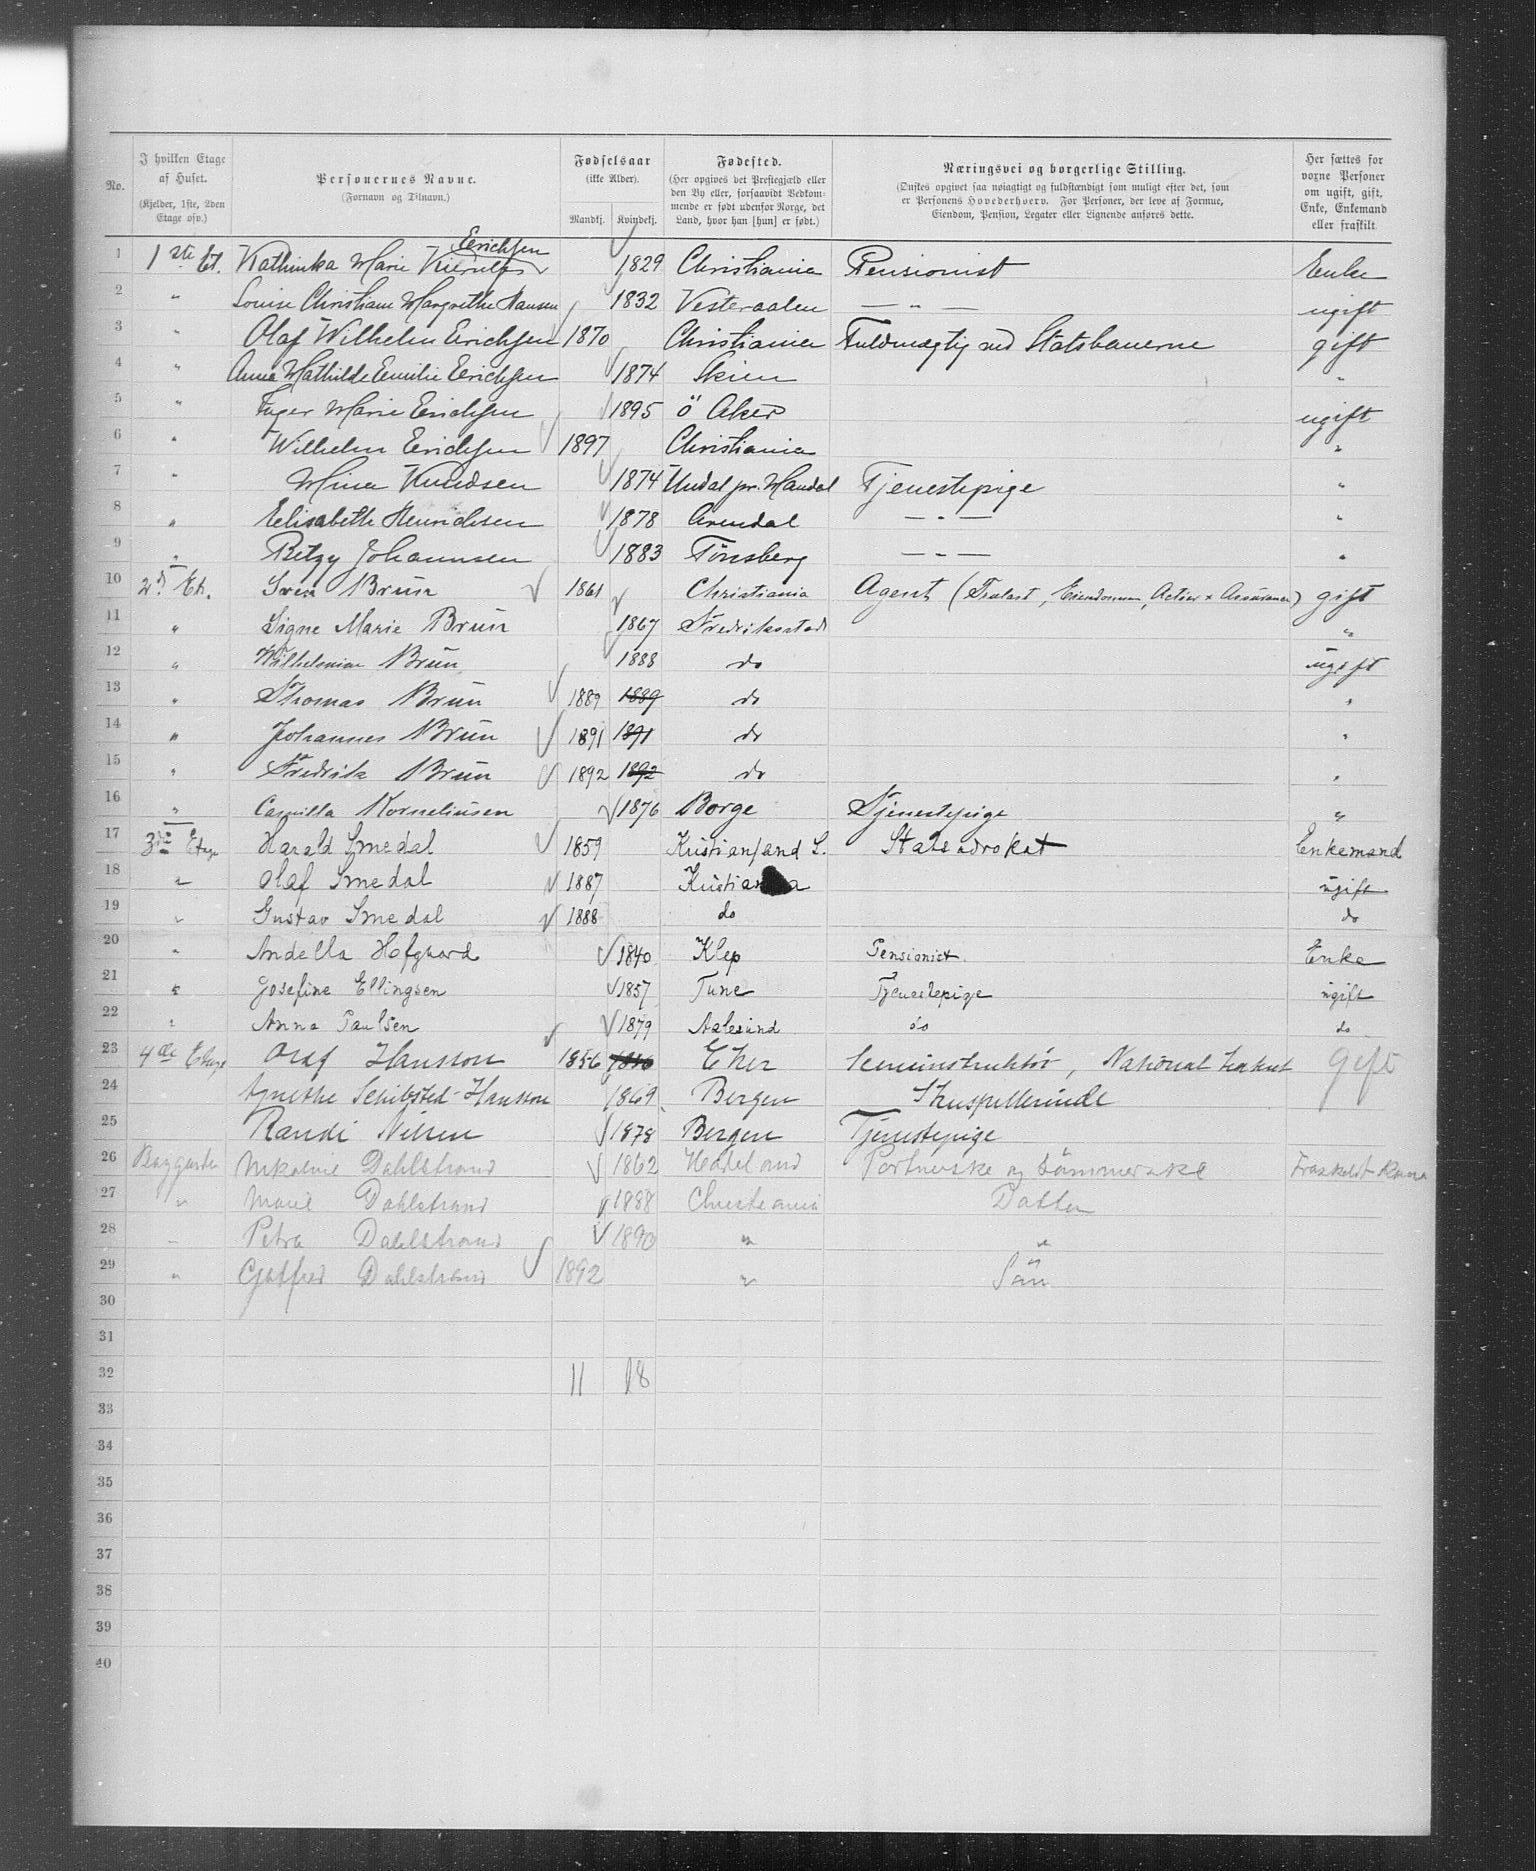 No.
I hvilken Etage af Huset.
(Kjelder, 1ste, 2den Etage osv.)
Personernes Navne.
(Fornavn og Tilnavn.)
Fødselsaar
(ikke Alder).
Mandkj. Kvindekj.
Fødested.
(Her opgives det Prestegjæld eller den By eller, forsaavidt Vedkommende er født udenfor Norge, det Land, hvor han [hun] er født.)
Næringsvei og borgerlige Stilling.
(Ønskes opgivet saa nøiagtigt og fuldstændigt som muligt efter det, som er Personens Hovederhverv. For Personer, der leve af Formue, Eiendom, Pension, Legater eller Lignende anføres dette.
Her sættes for voxne Personer om ugift, gift, Enke, Enkemand eller fraskilt.
1 1ste Et. Kathinka Marie Kierulf Erichsen 1829 Christiania Pensionist Enke
2 " Louise Christiane Margrethe Hansen 1832 Vesteraalen — " — ugift
3 " Olaf Wilhelm Erichsen 1870 Christiania Fuldmægtig ved Statsbanerne gift
4 " Anna Mathilde Emilie Erichsen 1874 Skien "
5 " Inger Marie Erichsen 1895 Ö Aker ugift
6 " Wilhelm Erichsen 1897 Christiania "
7 " Mina Knudsen 1874 Undal pr. Mandal Tjenestepige "
8 " Elisabeth Henrichsen 1878 Arendal — " — "
9 " Betzy Johannsen 1883 Tönsberg — " — "
10 2d Et. Svein Brun 1861 Christiania Agent (Trælast, Eiendomme, Actier & Assurance) gift
11 " Signe Marie Brun 1867 Fredriksstad "
12 " Wilhelmine Brun 1888 do ugift
13 " Thomas Brun 1889 1889 do "
14 " Johannes Brun 1891 1891 do "
15 " Fredrik Brun 1892 1892 do "
16 " Camilla Korneliusen 1876 Borge Tjenestepige "
17 3die Etage Harald Smedal 1859 Kristiansand S. Statsadvokat Enkemand
18 " Olaf Smedal 1887 Kristiania ugift
19 " Gustav Smedal 1888 do do
20 " Andella Hofgaard 1840 Klep Pensionist Enke
21 " Josefine Ellingsen 1857 Tune Tjenestepige ugift
22 " Anna Paulsen 1879 Aalesund do do
23 4de Etage Olaf Hansson 1856 1856 Eker Sceneinstruktör, National gift
24 Agnethe Schibsted-Hansson 1869 Bergen Skuespillerinde
25 Randi Nilsen 1878 Bergen Tjenestepige
26 Baggaarden Nikoline Dahlstrand 1862 Hadeland Portnerske og Fraskilt Kone
27 " Marie Dahlstrand 1888 Christiania Datter
28 " Petra Dahlstrand 1890 " "
29 " Gotfred Dahlstrand 1892 " Sön
30
31
32 11 18
33
34
35
36
37
38
39
40